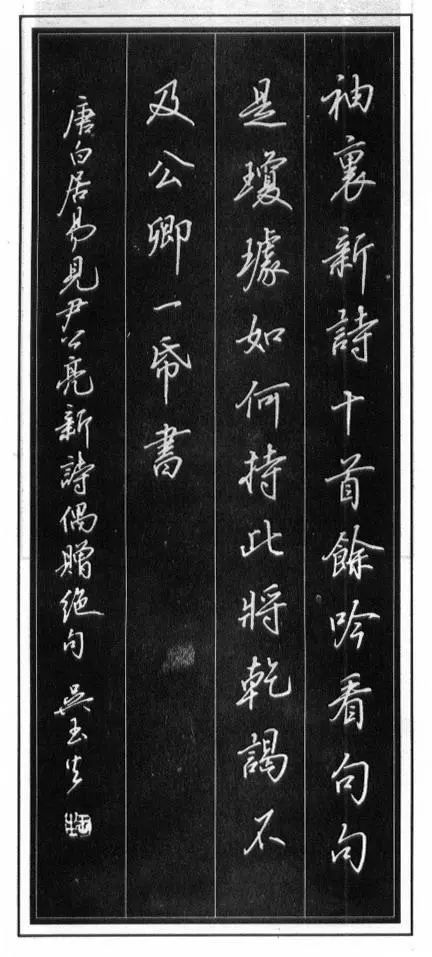 袖裏新詩十首餘吟看句句
是瓊琚如何持此將乾謁不
及公卿一帋書
唐白居易見尹公亮新詩偶贈絶句 吳玉生